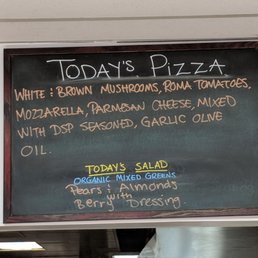 TODAY'S PIZZA
WHITE: BROWN MUSHROOMS, ROMA TOMATOES,
MOZZARELLA, PARMESAN CHEESE, MIXED
WITH DSP SEASONED, GARLIC OLIVE
OIL.
TODAY'S SALAD
ORGANIC MIXED GREENS
Pears & Almonds
with
Berry Dressing.